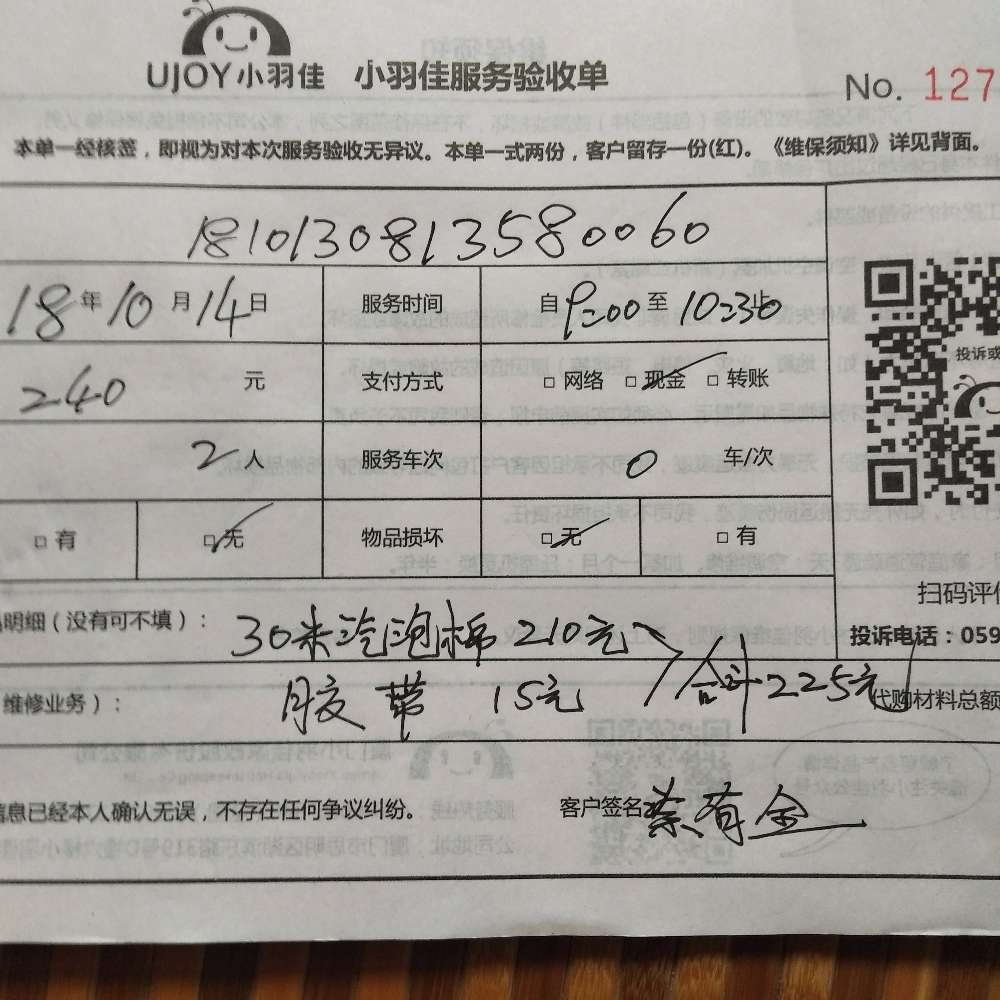 UJOY小羽佳 小羽佳服务验收单 No. 127
本单一经核签，即视为对本次服务验收无异议。本单一式两份，客户留存一份(红)。《维保须知》详见背面。
181013081358 0060
18年10月14日 服务时间 自9:00至10:30止
240元 支付方式 □网络 □现金 □转账
投诉或
2人 服务车次 0车/次
□有 □无 物品损坏 □无 □有
扫码评价
明细（没有可不填）： 30米汽泡棉 210元
投诉电话：059
维修业务）： 胶带 15元 合计225元
代购材料总额
信息已经本人确认无误，不存在任何争议纠纷。 客户签名 有金